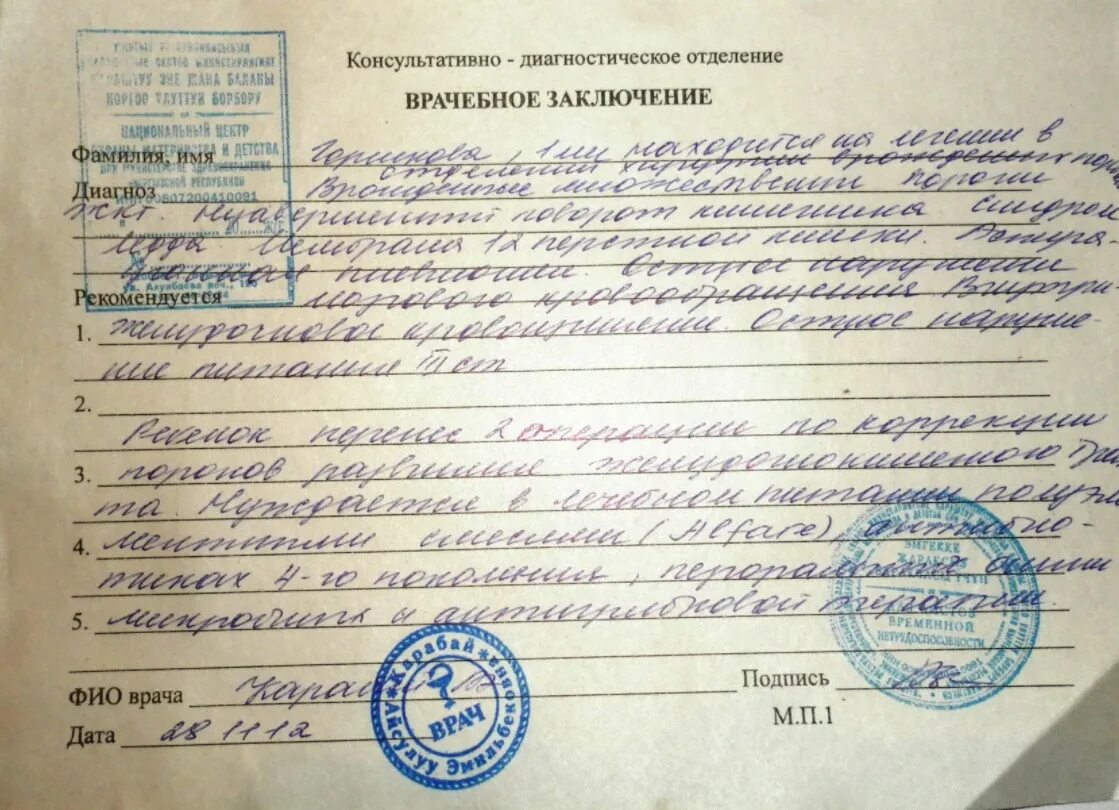 КОРГОО УЛУТТУК БОРБОРУ
НАЦИОНАЛЬНЫЙ ЦЕНТР
ОХРАНЫ МАТЕРИНСТВА И ДЕТСТВА
ПРИ МИНИСТЕРСТВЕ ЗДРАВООХРАНЕНИЯ
КЫРГЫЗСКОЙ РЕСПУБЛИКИ
Консультативно - диагностическое отделение
ВРАЧЕБНОЕ ЗАКЛЮЧЕНИЕ
Фамилия, имя Горшкова, находится на лечении в
отделении хирургии врожденных
Диагноз Врожденные множественные пороки
ЖКТ. Незавершенный поворот кишечника Синдром
Ледда Мембрана 12 перстной кишки.
пневмония. Острое нарушение
Рекомендуется мозгового кровообращения
1. желудочковое кровоизлияние. Острое наруше-
ние питания III ст
2.
Ребенок перенес 2 операции по коррекции
3. пороков развития желудочнокишечного трак
та. Нуждается в лечебном питании полуэле
4. ментными смесями (Alfare), антибио-
тиках 4-го поколения,
5. и антигрибковой терапии.
ФИО врача
Подпись
Дата 28 11 12
М.П.1
Карабай
Айсулуу Эмильбек
ВРАЧ
ЭМГЕККЕ
ВРЕМЕННОЙ
НЕТРУДОСПОСОБНОСТИ